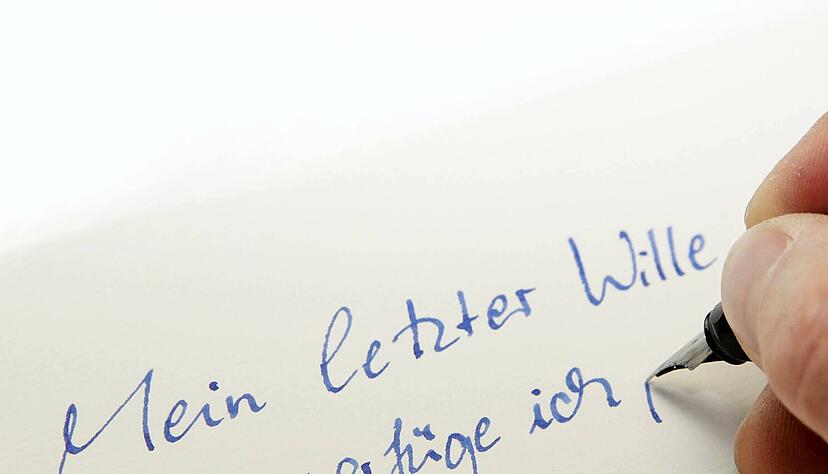 Mein letzter Wille
verfüge ich